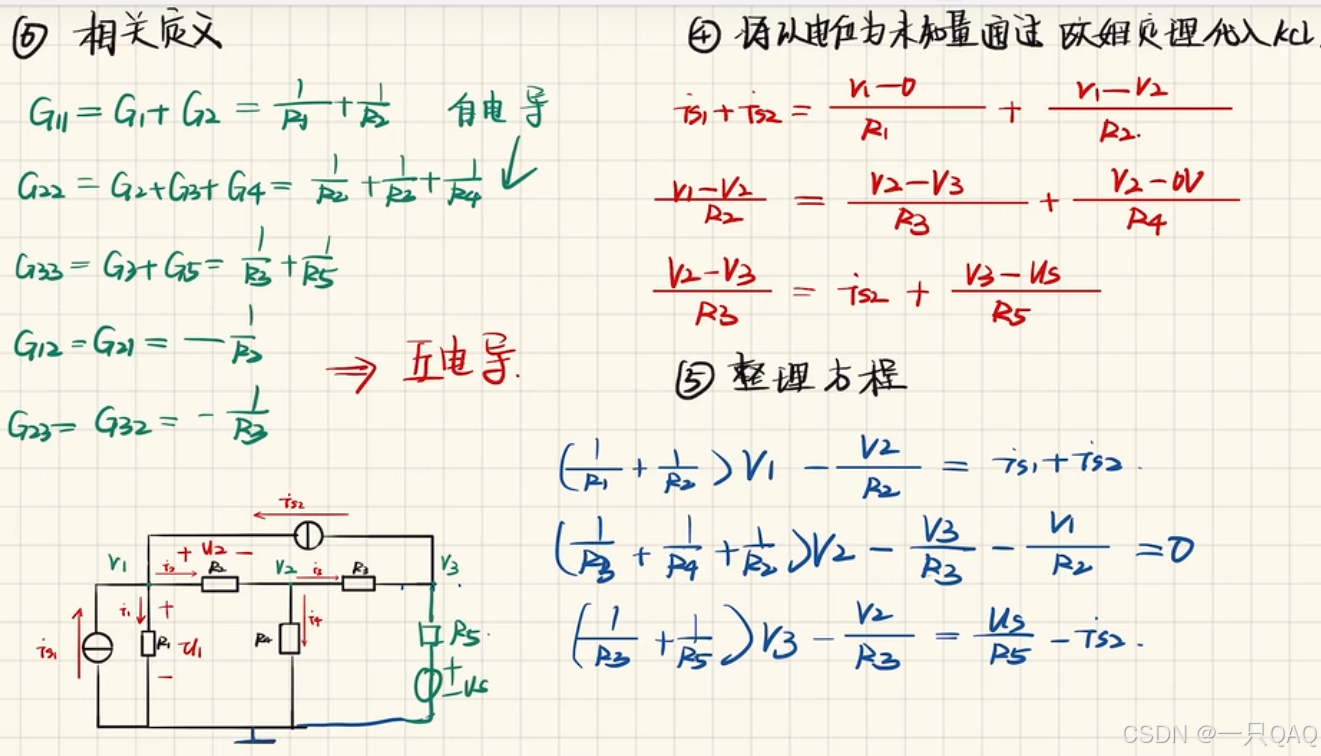 ⑥ 相关定义
G11 = G1 + G2 = 1/R1 + 1/R2 自电导
G22 = G2+G3+G4 = 1/R2 + 1/R3 + 1/R4
G33 = G3+G5 = 1/R3 + 1/R5
G12 = G21 = - 1/R2
⇒ 互电导.
G23 = G32 = - 1/R3
④ 将以电位为未知量通过 欧姆定理代入KCL
is1 + is2 = (V1-0)/R1 + (V1-V2)/R2.
(V1-V2)/R2 = (V2-V3)/R3 + (V2-0V)/R4
(V2-V3)/R3 = is2 + (V3-Us)/R5
⑤ 整理方程
(1/R1 + 1/R2)V1 - V2/R2 = is1 + is2.
(1/R3 + 1/R4 + 1/R2)V2 - V3/R3 - V1/R2 = 0
(1/R3 + 1/R5)V3 - V2/R3 = Us/R5 - is2.
is2
+ U2 -
V1 i2 R2 V2 i3 R3 V3
is1 i1 + R1 U1 - R4 i4 R5
+ - Us
CSDN @一只QAQ